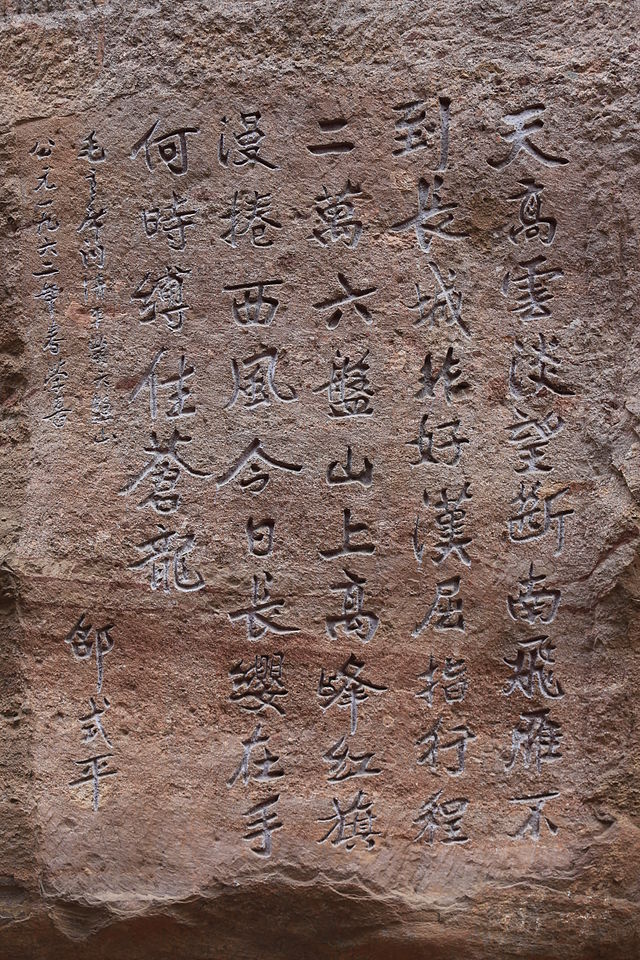 天高雲淡望斷南飛雁不
到長城非好漢屈指行程
二萬六盤山上高峰红旗
漫捲西風今日長纓在手
何時縛住蒼龍
毛主席词清平樂六盤山
公元一九六二年春
邵式平